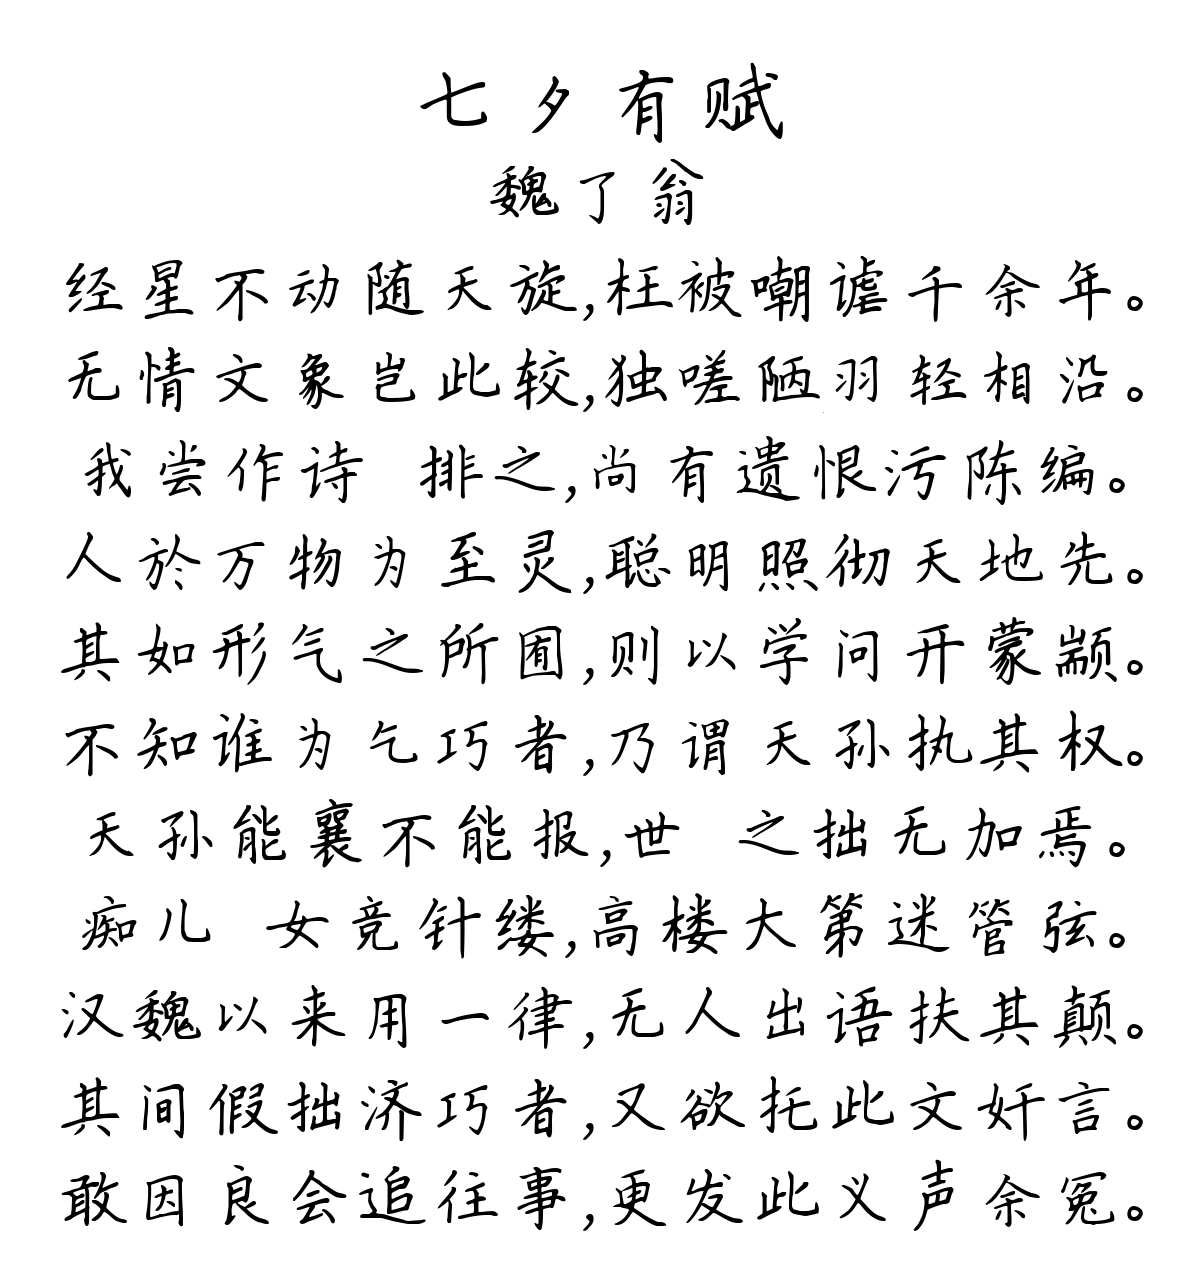 七夕有赋
魏了翁
经星不动随天旋,枉被嘲谑千余年。
无情文象岂此较,独嗟陋羽轻相沿。
我尝作诗 排之,尚有遗恨污陈编。
人於万物为至灵,聪明照彻天地先。
其如形气之所囿,则以学问开蒙颛。
不知谁为乞巧者,乃谓天孙执其权。
天孙能襄不能报,世 之拙无加焉。
痴儿 女竞针缕,高楼大第迷管弦。
汉魏以来用一律,无人出语扶其颠。
其间假拙济巧者,又欲托此文奸言。
敢因良会追往事,更发此义声余冤。